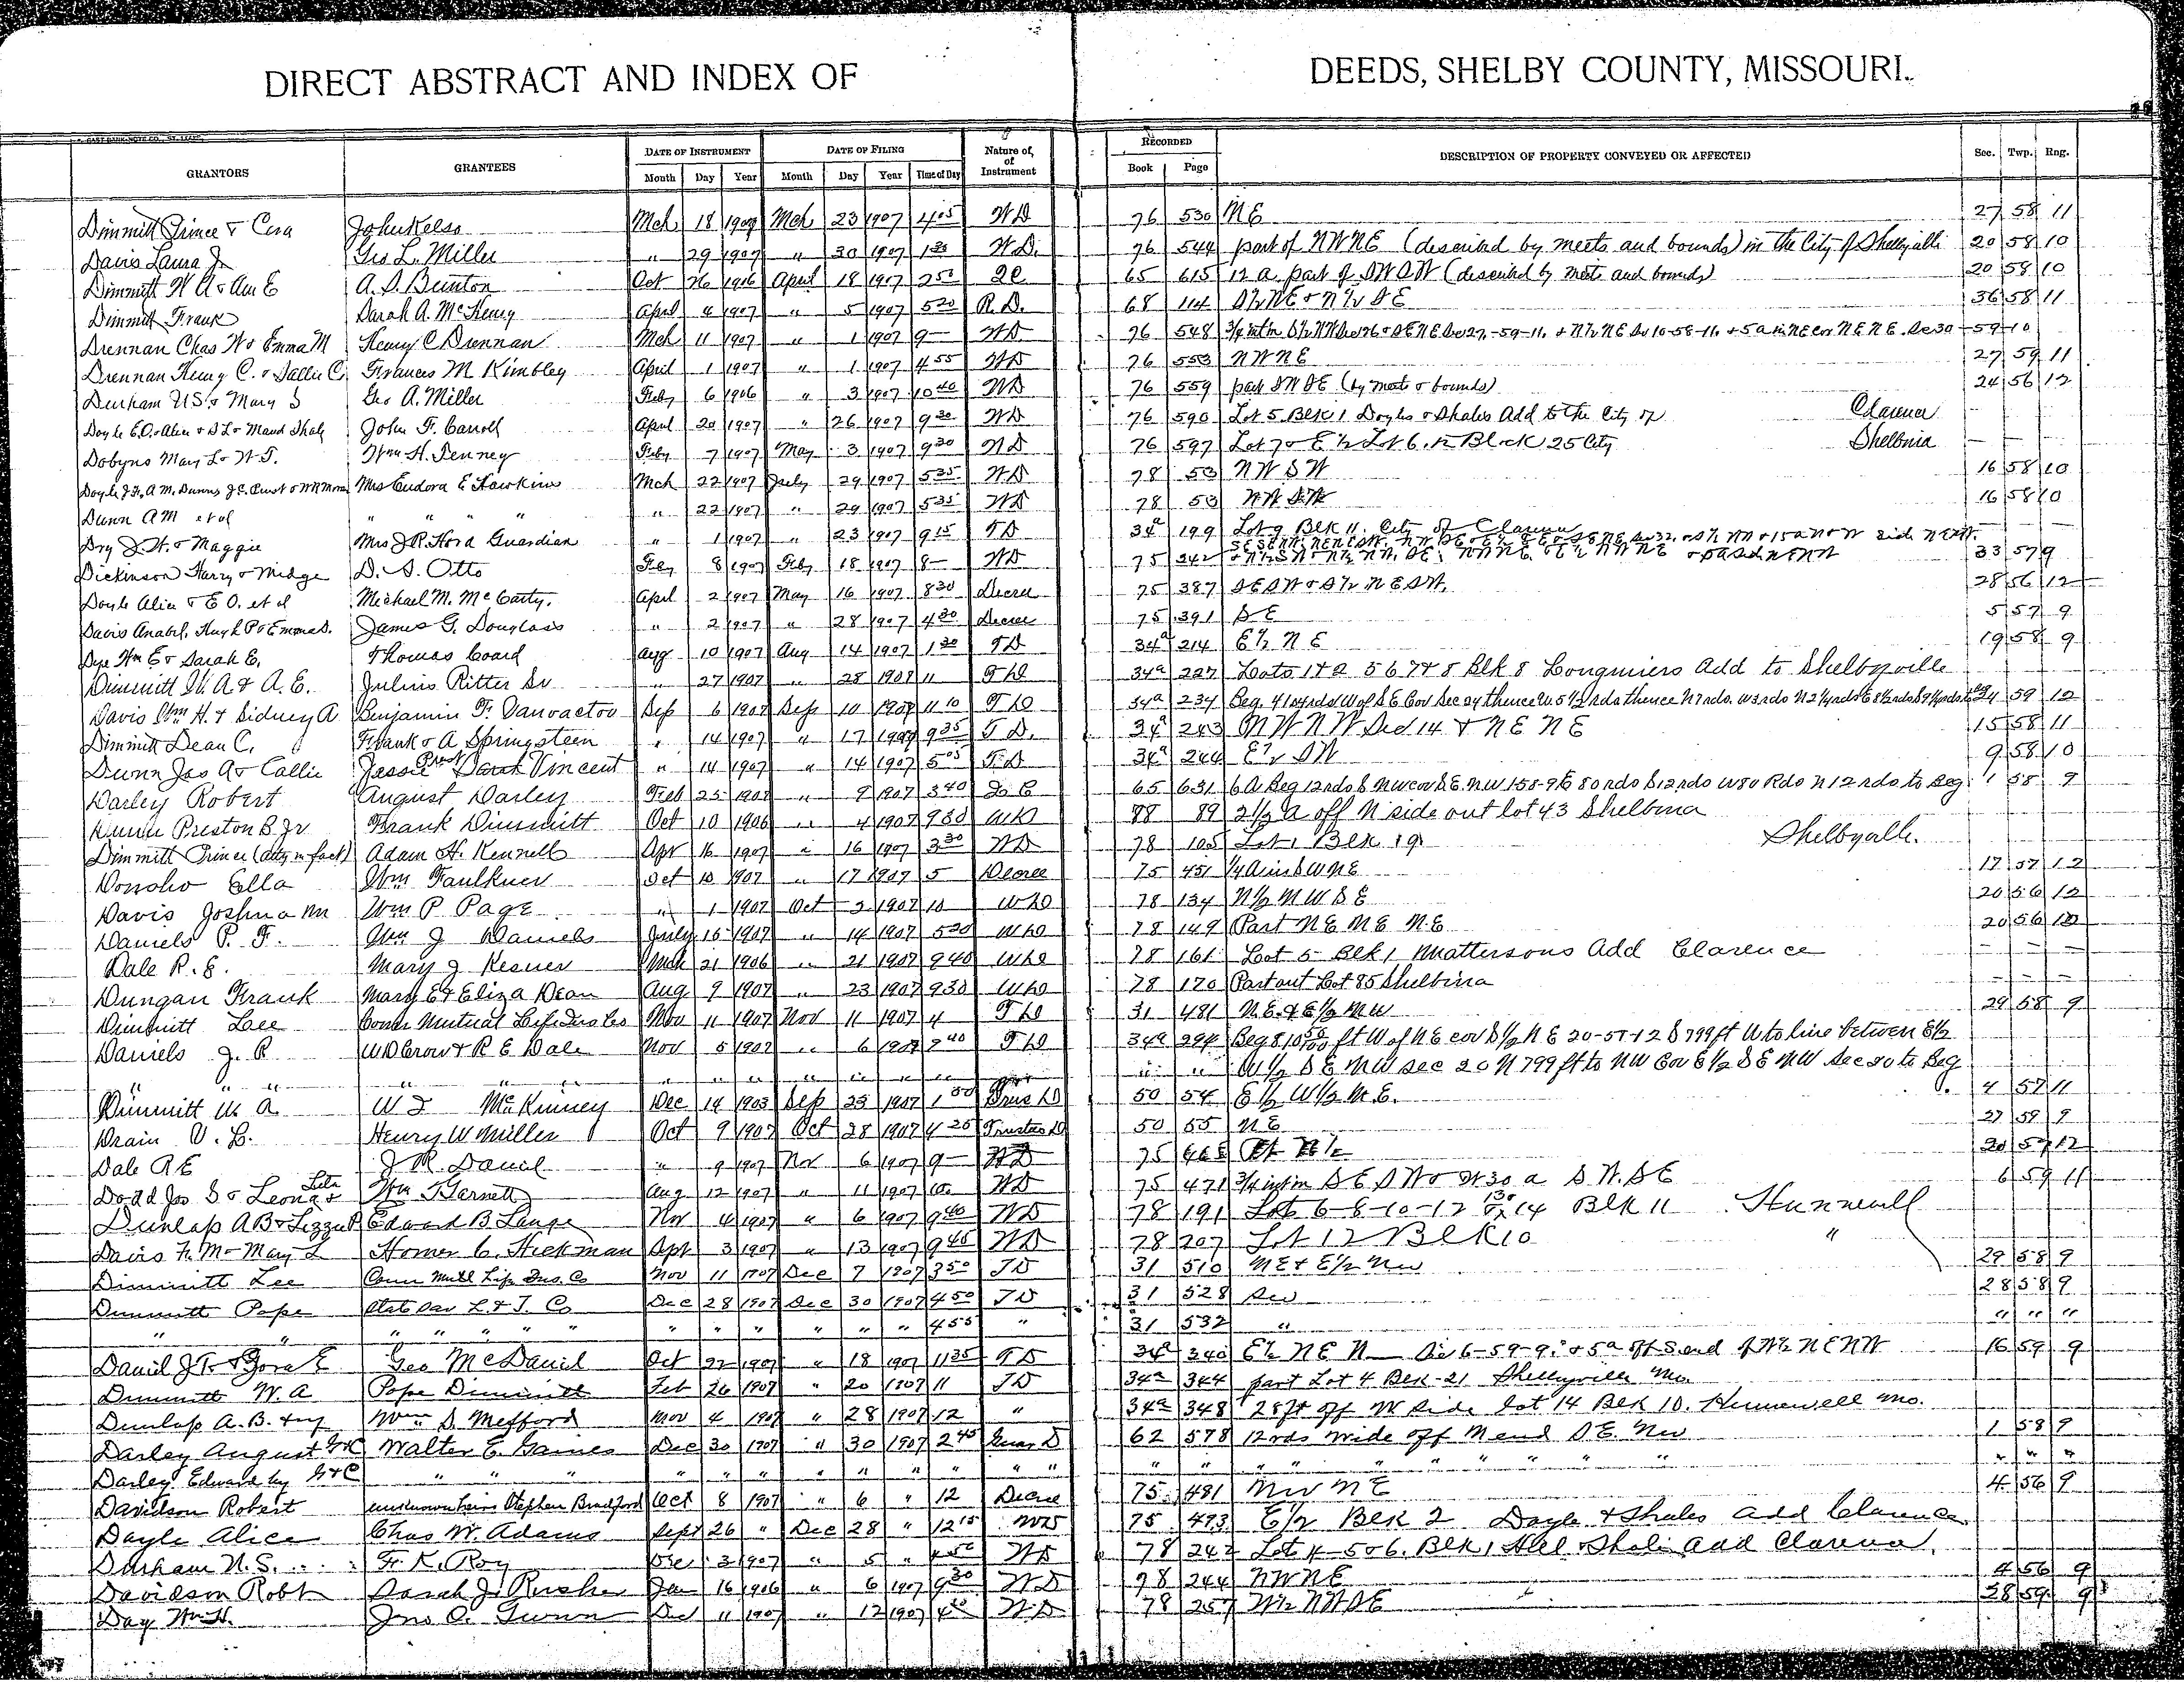 DIRECT ABSTRACT AND INDEX OF DEEDS, SHELBY COUNTY, MISSOURI.
GRANTORS GRANTEES DATE OF INSTRUMENT DATE OF FILING Nature of, of Instrument RECORDED DESCRIPTION OF PROPERTY CONVEYED OR AFFECTED Sec. Twp. Rng.
Month Day Year Month Day Year Time of Day Book Page
Dimmitt Prince & Cora John Kelso Mch 18 1907 Mch 23 1907 4 05 WD 76 530 NE 27 58 11
Davis Laura J Geo L. Miller " 29 1907 " 30 1907 1 30 W.D. 76 544 part of NWNE (described by meets and bounds) in the City of Shelbyville 20 58 10
Dimmitt W A & Ann E A. S. Bunton Oct 26 1906 April 18 1907 2 50 QC 65 615 12 a. part of SWSW (described by meets and bounds) 20 58 10
Dimmitt Frank Sarah A. McHenry April 4 1907 " 5 1907 5 20 R.D. 68 114 S½NE & N½SE 36 58 11
Drennan Chas W & Emma M Henry C Drennan Mch 11 1907 " 1 1907 9 — WD 76 548
Drennan Henry C. & Sallie C. Frances M. Kimbley April 1 1907 " 1 1907 4 55 WD 76 553 NWNE 27 59 11
Durham U.S. & Mary S Geo A. Miller Feby 6 1906 " 3 1907 10 40 WD 76 559 part SWSE (by meets & bounds) 24 56 12
Doyle E.O. & Alice & S L & Maud Shale John F. Carroll April 20 1907 " 26 1907 9 30 WD 76 590 Lot 5 Blk 1 Doyles & Shales Add to the City of Clarence — — —
Dobyns Mary L & W. T. Wm H. Penney Feby 7 1907 May 3 1907 9 30 WD 76 597 Lot 7 & E½ Lot 6 in Block 25 City Shelbina — — —
Doyle J.F., A M. Dunns Mrs Eudora E Hawkins Mch 22 1907 July 29 1907 5 35 WD 78 53 NWSW 16 58 10
Dunn A M et al " " " " " 22 1907 29 1907 5 35 WD 78 53 NWSW 16 58 10
Dry J. W. & Maggie Mrs J R. Hord Guardian " 1 1907 " 23 1907 9 15 TD 34a 199 Lot 9 Blk 11. City of Clarence — — —
Dickinson Harry & Midge D. S. Otto Feby 8 1907 Feby 18 1907 8 — WD 75 342 33 57 9
Doyle Alice & E O. et al Michael M. McCarty. April 2 1907 May 16 1907 8 30 Decree 75 387 SESW & S½ NESW. 28 56 12
Davis Anabel, Hugh P & Emma D. James G. Douglass " 2 1907 " 28 1907 4 30 Decree 75 391 SE 5 57 9
Dye Wm E & Sarah E. Thomas Coard Aug 10 1907 Aug 14 1907 1 30 TD 34a 214 E½ NE 19 58 9
Dimmitt W. A & A. E. Julius Ritter Sr " 27 1907 " 28 1907 11 TD 34a 227 Lots 1 & 2 5 6 7 & 8 Blk 8 Longmiers Add to Shelbyville
Davis Wm H. & Sidney A Benjamin F. Vanvactor Sep 6 1907 Sep 10 1907 11 10 TD 34a 234 24 59 12
Dimmitt Dean C. Frank & A Springsteen " 14 1907 " 17 1907 9 35 T.D. 34a 243 NWNW Sec 14 & NENE 15 58 11
Dunn Jas A & Callie Jessie Sarah Vincent " 14 1907 " 14 1907 5 05 T.D 34a 244 E½ SW 9 58 10
Darley Robert August Darley Feb 25 1907 " 9 1907 3 40 65 631 6 A Beg 12 rds S NW cor SE NW 1-58-9 E 80 rds S 12 rds W 80 Rds N 12 rds to Beg. 1 58 9
Dunn Preston B Jr Frank Dimmitt Oct 10 1906 " 4 1907 9 30 WD 88 89 2½ A off N side out lot 43 Shelbina
Dimmitt Prince (Atty in fact) Adam H. Kennell Apr 16 1907 " 16 1907 3 30 WD 78 105 Lot 1 Blk 19 Shelbyville.
Donoho Ella Wm Faulkner Oct 10 1907 " 17 1907 5 Decree 75 451 17 57 12
Davis Joshua M Wm P. Page " 1 1907 Oct 2 1907 10 WD 78 134 N½ NWSE 20 56 12
Daniels P. F. Wm J Daniels July 15 1907 " 14 1907 5 20 WD 78 149 Part NE NE NE 20 56 12
Dale R. E. Mary J Kesner Mch 21 1906 " 21 1907 9 40 WD 78 161 Lot 5 Blk 1 Mattersons Add Clarence — — —
Dungan Frank Mary E & Eliza Dean Aug 9 1907 " 23 1907 9 30 WD 78 170 Part out Lot 85 Shelbina — — —
Dimmitt Lee Conn Mutual Life Ins Co Nov 11 1907 Nov 11 1907 4 TD 31 481 N.E. & E½ NW 29 58 9
Daniels J. R W D Crow & R E Dale Nov 5 1907 " 6 1907 2 40 TD 34a 294 Beg 810 ft W of N E cor S½ NE 20-57-12 S 799 ft W to line between E½
" " " " " " " " " " " " W½ SE NW Sec 20 N 799 ft to NW Cor E½ SE NW Sec 20 to Beg
Dimmitt W. A. W I McKinney Dec 14 1903 Sep 23 1907 1 50 Trus D 50 54 E½ W½ N.E. 4 57 11
Drain V. L. Henry W Miller Oct 9 1907 Oct 28 1907 4 25 Trustee D 50 55 NE 27 58 9
Dale R E J R. Daniel " 9 1907 Nov 6 1907 9 — WD 75 465 20 57 12
Dodd Jos S & Leona & Lila Wm T Garnett Aug 12 1907 " 11 1907 10 WD 75 471 6 59 11
Dunlap A B & Lizzie R Edward B Lange Nov 4 1907 " 6 1907 9 40 WD 78 191 Lots 6-8-10-12 & 14 Blk 11 Hunnewell
Davis F. M & Mary L Homer C. Hickman Apr 3 1907 " 13 1907 9 45 WD 78 207 Lot 12 Blk 10 "
Dimmitt Lee Conn Mutl Life Ins. Co Nov 11 1907 Dec 7 1907 3 50 TD 31 510 NE & E½ NW 29 58 9
Dimmitt Pope State Sav L & T. Co Dec 28 1907 Dec 30 1907 4 50 TD 31 528 SW 28 58 9
" " " " " " " " " " " " " 4 55 " 31 532 " " " "
Daniel J. T. & Dora E Geo McDaniel Oct 22 1907 " 18 1907 11 35 TD 34a 340 16 59 9
Dimmitt W. A Pope Dimmitt Feb 26 1907 " 20 1907 11 TD 34a 344 part Lot 4 Blk 21 Shelbyville Mo.
Dunlap A. B. & wf Wm S. Mefford Nov 4 1907 " 28 1907 12 " 34a 348 28 ft off W side Lot 14 Blk 10. Hunnewell Mo.
Darley August G&C Walter E. Gaines Dec 30 1907 " 30 1907 2 45 Guar D 62 578 12 rds wide off N end SE. NW 1 58 9
Darley Edward by G&C " " " " " " " " " " " " " " " " " " " " " " " "
Davidson Robert unknown heirs Stephen Bradford Oct 8 1907 " 6 " 12 Decree 75 481 NW NE 4 56 9
Dayle Alice Chas W. Adams Sept 26 " Dec 28 " 12 15 WD 75 493 E½ Blk 2 Doyle & Shales Add Clarence
Durham U.S. F. K. Roy Dec 3 1907 " 5 " 4 50 WD 78 242 Lots 4-5 & 6. Blk 1 Shale Add Clarence.
Davidson Robt Sarah J. Rusher Jan 16 1906 " 6 1907 9 30 WD 78 244 NWNE 4 56 9
Day Wm H. Jno C. Gunn Dec 11 1907 " 12 1907 4 30 W.D. 78 257 W½ NWSE 28 59 9